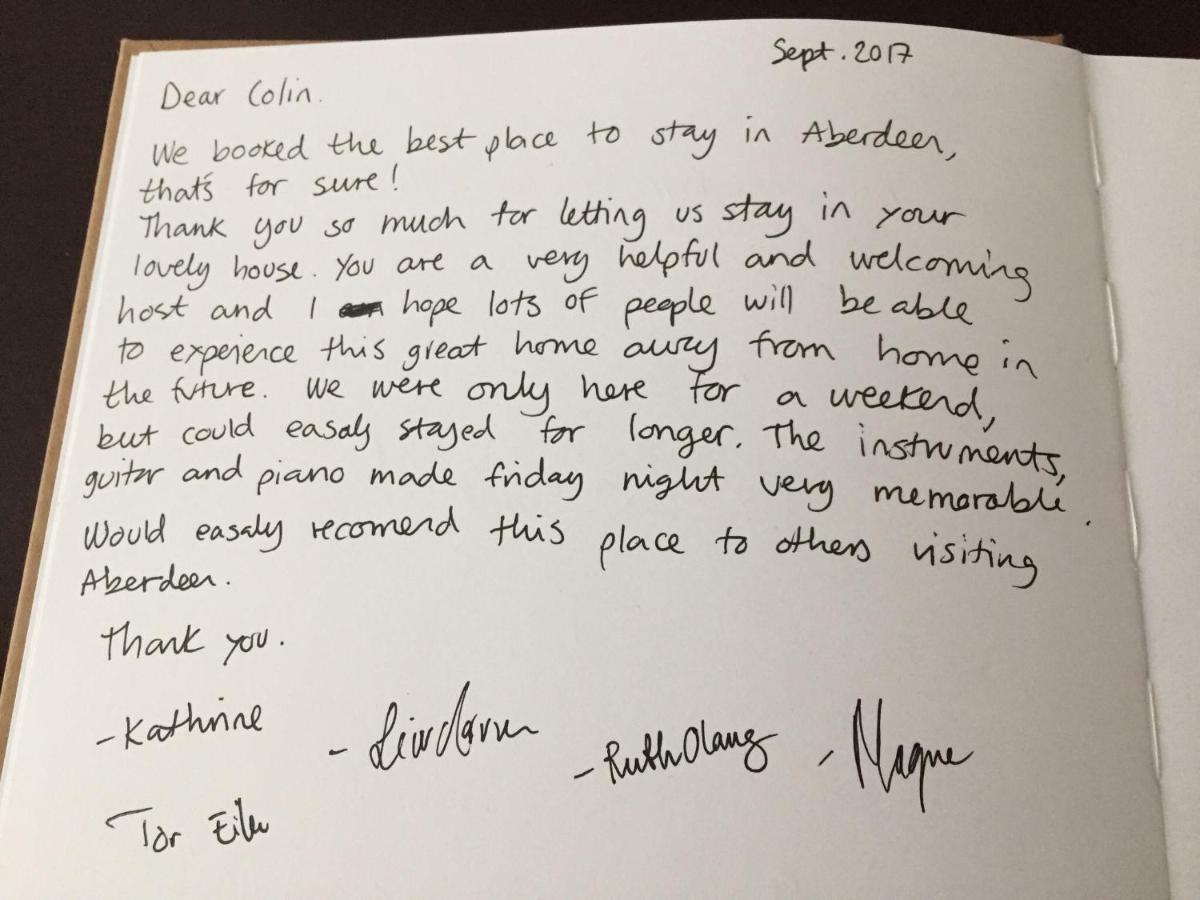 Sept. 2017
Dear Colin.
We booked the best place to stay in Aberdeen,
that's for sure!
Thank you so much for letting us stay in your
lovely house. You are a very helpful and welcoming
host and I hope lots of people will be able
to expeience this great home away from home in
the future. We were only here for a weekend,
but could easaly stayed for longer. The instruments,
guitar and piano made friday night very memorable.
Would easaly recomend this place to others visiting
Aberdeen.
Thank you.
-Kathrine
- Ruth Olaug - Magne
Tor